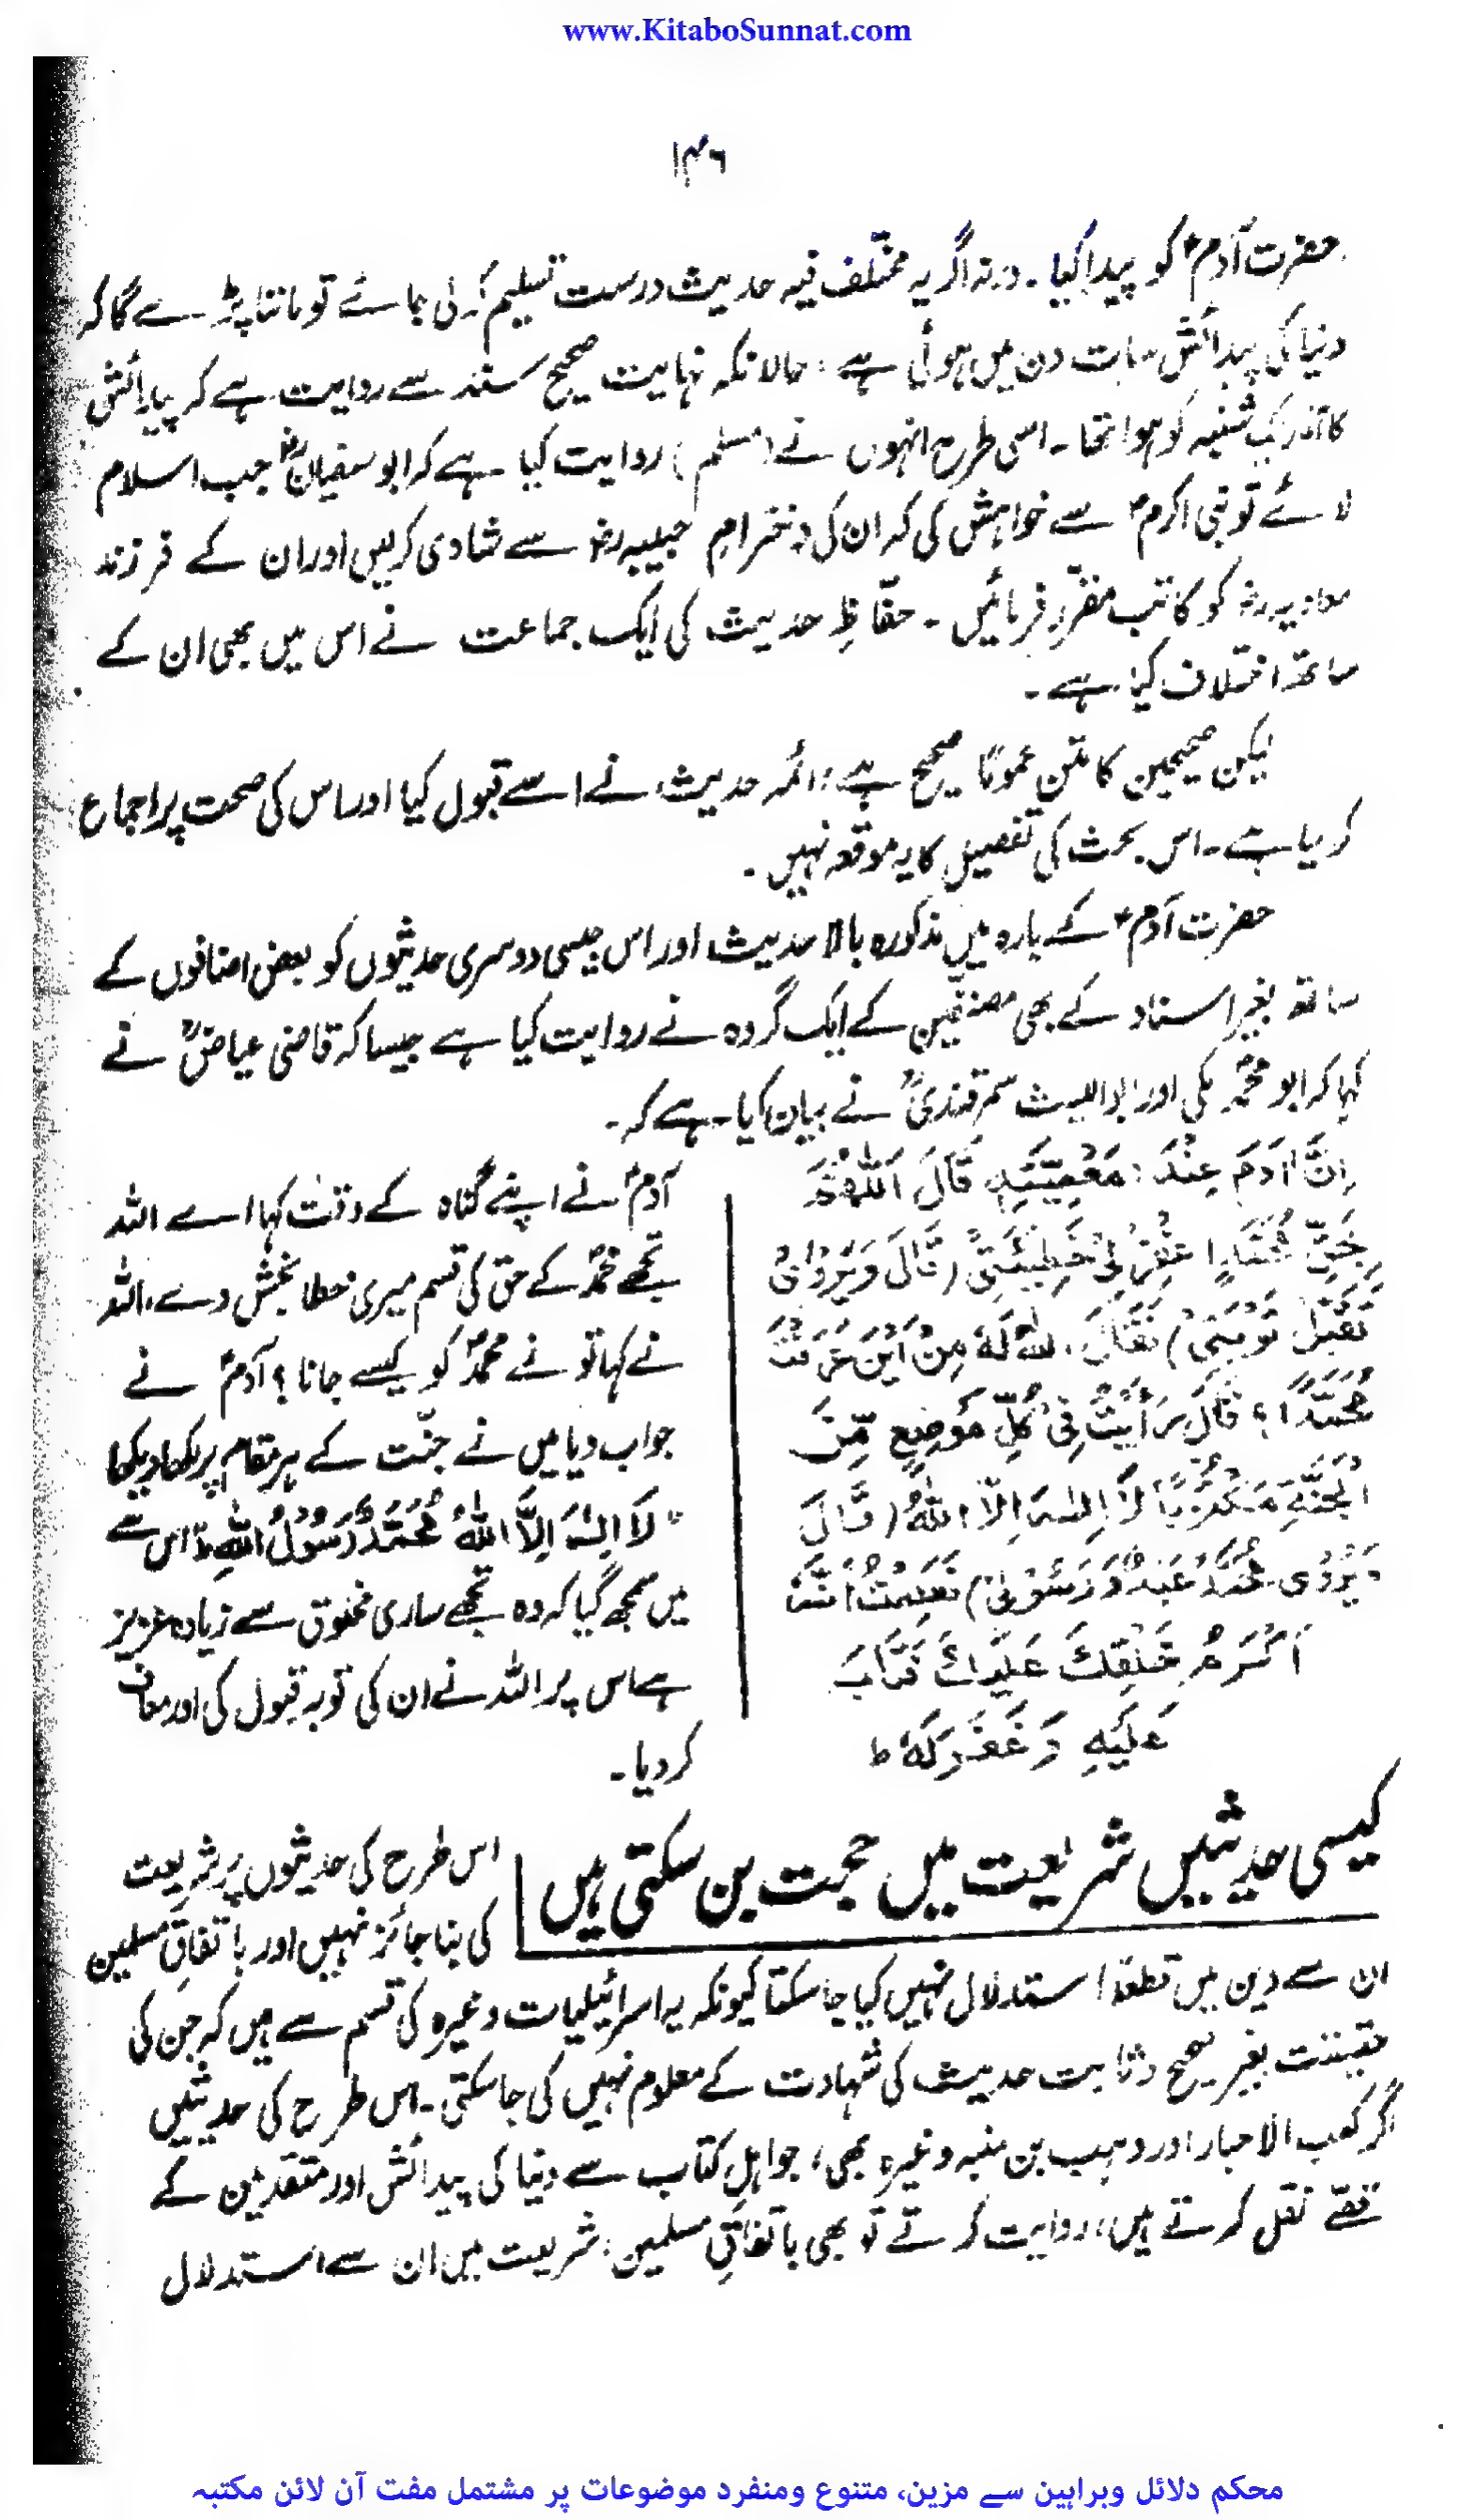 www.KitaboSunnat.com
۱۴۶
حضرت آدمؑ کو پیدا کیا۔ ورنہ اگر یہ مختلف فیہ حدیث درست تسلیم کر لی جائے تو ماننا پڑے گا کہ
دنیا کی پیدائش سات دن میں ہوئی ہے، حالانکہ نہایت صحیح سند سے روایت ہے کہ پیدائش
کا آغاز یک شنبہ کو ہوا تھا۔ اسی طرح انہوں نے (مسلم) روایت کیا ہے کہ ابوسفیانؓ جب اسلام
لائے تو نبی اکرمؐ سے خواہش کی کہ ان کی دختر ام حبیبہ رضؓ سے شادی کر لیں اور ان کے فرزند
معاویہ رضؓ کو کاتب مقرر فرمائیں۔ حفّاظِ حدیث کی ایک جماعت نے اس میں بھی ان کے
ساتھ اختلاف کیا ہے۔
لیکن صحیحین کا متن عموماً صحیح ہے، ائمہ حدیث نے اسے قبول کیا اور اس کی صحت پر اجماع
کر لیا ہے۔ اس بحث کی تفصیل کا یہ موقعہ نہیں۔
حضرت آدمؑ کے بارہ میں مذکورہ بالا حدیث اور اس جیسی دوسری حدیثوں کو بعض اضافوں کے
ساتھ بغیر اسناد کے بھی مصنفین کے ایک گروہ نے روایت کیا ہے جیسا کہ قاضی عیاضؒ نے
کہا کہ ابو محمدؒ مکی اور ابو اللیث سمرقندیؒ نے بیان کیا ہے کہ۔
اِنَّ اٰدَمَ عِنْدَ مَعْصِيَتِهٖ قَالَ اَللّٰهُمَّ
بِحَقِّ مُحَمَّدٍ اِغْفِرْ لِیْ خَطِيْئَتِیْ (قَالَ وَيُرْوٰی
تَقَبَّلْ تَوْبَتِیْ) فَقَالَ اللّٰهُ لَهٗ مِنْ اَيْنَ عَرَفْتَ
مُحَمَّدًا؟ قَالَ رَأَيْتُ فِیْ كُلِّ مَوْضِعٍ مِّنَ
الْجَنَّةِ مَكْتُوْبًا لَا اِلٰهَ اِلَّا اللّٰهُ (قَالَ
وَيُرْوٰی مُحَمَّدٌ عَبْدِیْ وَرَسُوْلِیْ) فَعَلِمْتُ اَنَّهٗ
اَكْرَمُ خَلْقِكَ عَلَيْكَ فَتَابَ
عَلَيْهِ وَغَفَرَ لَهٗ ط
آدمؑ نے اپنے گناہ کے وقت کہا اے اللہ
تجھے محمدؐ کے حق کی قسم میری خطا بخش دے، اللہ
نے کہا تو نے محمدؐ کو کیسے جانا؟ آدمؑ نے
جواب دیا میں نے جنّت کے ہر مقام پر لکھا دیکھا
"لَا اِلٰهَ اِلَّا اللّٰهُ مُحَمَّدٌ رَّسُوْلُ اللّٰهِ" اس سے
میں سمجھ گیا کہ وہ تجھے ساری مخلوق سے زیادہ عزیز
ہے اس پر اللہ نے ان کی توبہ قبول کی اور معاف
کر دیا۔
کیسی حدیثیں شریعت میں حجت بن سکتی ہیں
اس طرح کی حدیثوں پر شریعت
کی بنا جائز نہیں اور با تفاقِ مسلمین
ان سے دین میں قطعاً استدلال نہیں کیا جا سکتا کیونکہ یہ اسرائیلیات وغیرہ کی قسم سے ہیں کہ جن کی
حقیقت بغیر صحیح و ثابت حدیث کی شہادت کے معلوم نہیں کی جا سکتی۔ اس طرح کی حدیثیں
اگر کعب الاحبار اور وہب بن منبہ وغیرہ بھی، جو اہلِ کتاب سے دنیا کی پیدائش اور متقدمین کے
قصّے نقل کرتے ہیں، روایت کرتے تو بھی با تفاقِ مسلمین، شریعت میں ان سے استدلال
محکم دلائل وبراہین سے مزین، متنوع ومنفرد موضوعات پر مشتمل مفت آن لائن مکتبہ